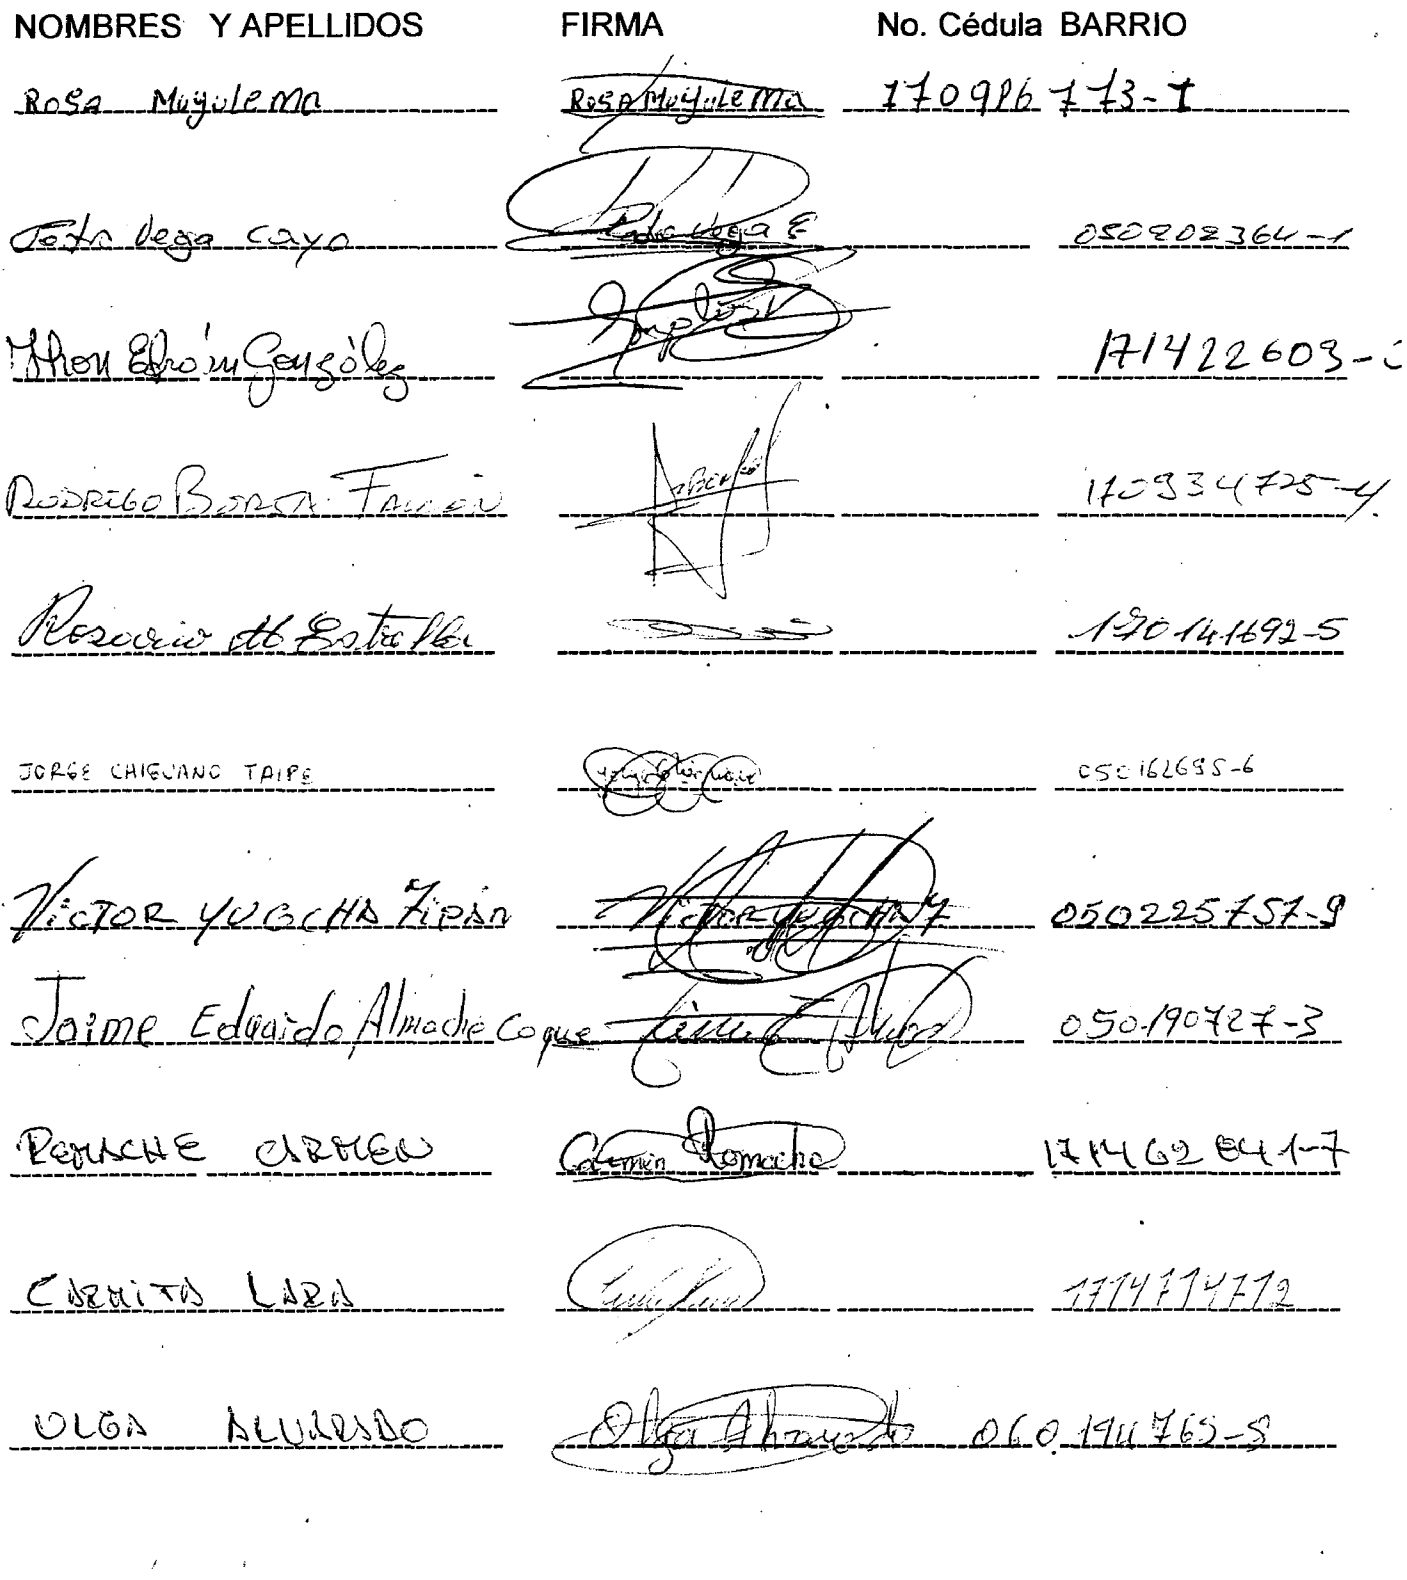 NOMBRES Y APELLIDOS FIRMA No. Cédula BARRIO
ROSA Muyulema ROSA Muyulema 170986773-1
Vega Cayo Vega E 050202364-1
Jhon Efraín González 171422603-
RODRIGO BORJA 170934725-4
Rosario de Estrella 170141692-5
JORGE CHIGUANO TAIPE 050162695-6
VICTOR YUGCHA VICTOR YUGCHA 050225757-9
Jaime Eduardo Almache Coque 050190727-3
REMACHE CARMEN Carmen Remache 171462841-7
CARMITA LARA 1714714712
OLGA ALVARADO Olga Alvarado 060194769-9